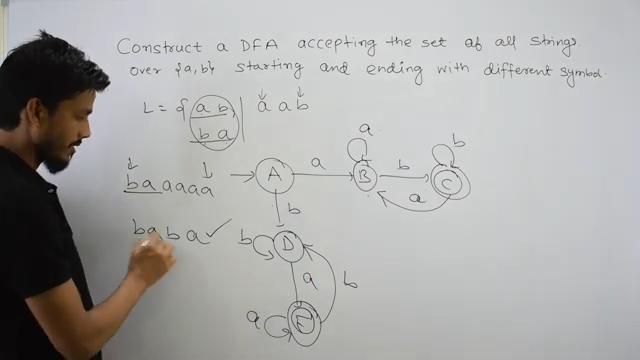 Construct a DFA accepting the set of all strings
over {a,b} starting and ending with different symbol.
L = { ab, | a a b
ba
baaaaa
baba ✓
A
a
B
a
b
C
b
a
b
D
b
a
b
E
a